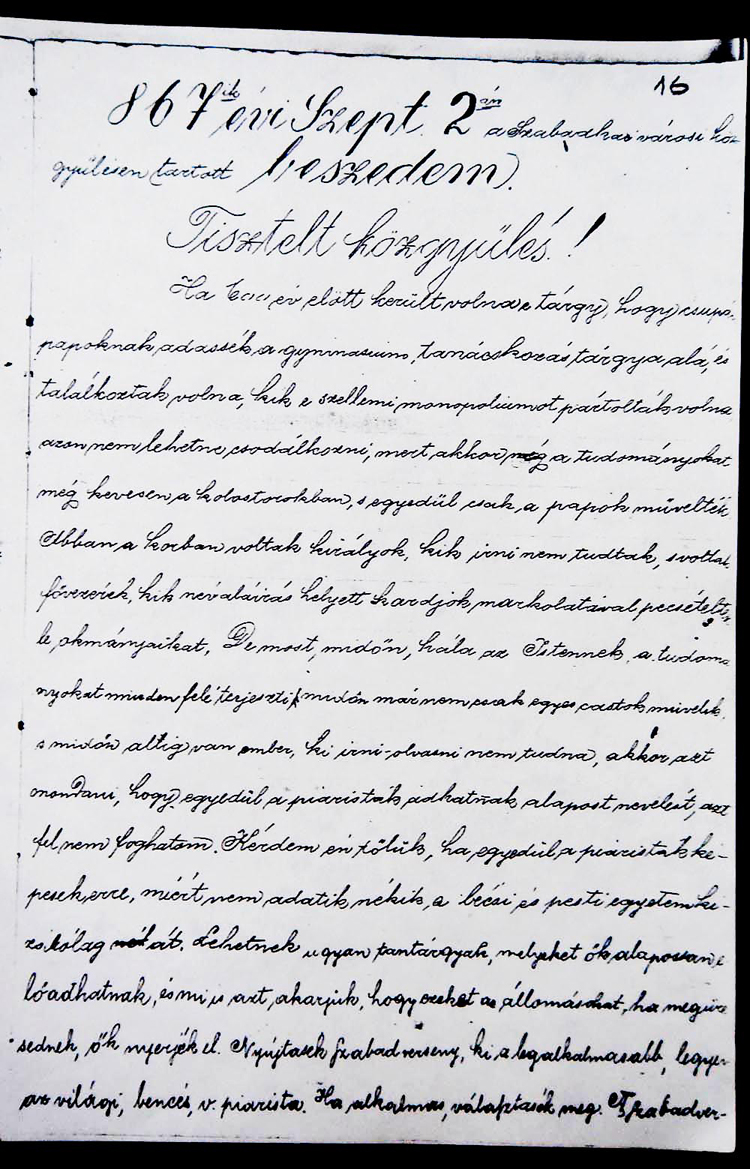 16
867ik évi Szept. 2án a Szabadkai városi köz
gyülésen tartott beszedem.
Tisztelt közgyülés!
Ha 600 év elött került volna e tárgy, hogy csupá
papoknak adassék a gymnasium, tanácskozás tárgya alá, és
találkoztak volna, kik e szellemi monopoliumot pártolták volna
azon nem lehetne csodálkozni, mert akkor még a tudományokat
még kevesen a kolostorokban, s egyedül csak a papok művelték
Abban a korban voltak királyok, kik irni nem tudtak, s voltak
fővezérek, kik névaláirás helyett kardjok markolatával pecsételték
le okmányaikat. De most, midőn, hála az Istennek, a tudomá
nyokat minden felé terjesztik midőn már nem csak egyes castok művelik
s midőn altig van ember, ki irni-olvasni nem tudna, akkor azt
mondani, hogy egyedül a piaristák adhatnak alapost nevelést, azt
fel nem foghatom. Kérdem én tőlük, ha egyedül a piaristák ké-
pesek erre, miért nem adatik nékik a bécsi és pesti egyetem ki-
zárólag át. Lehetnek ugyan tantárgyak, melyeket ők alapossan e
lőadhatnak, és mi is azt akarjuk, hogy ezeket az állomásokat, ha megüre
sednek, ők nyerjék el. Nyújtasék szabadverseny, ki a legalkalmasabb, legyen
az világi, bencés, v. piarista. Ha alkalmas, válasfztasék meg. Szabadver-